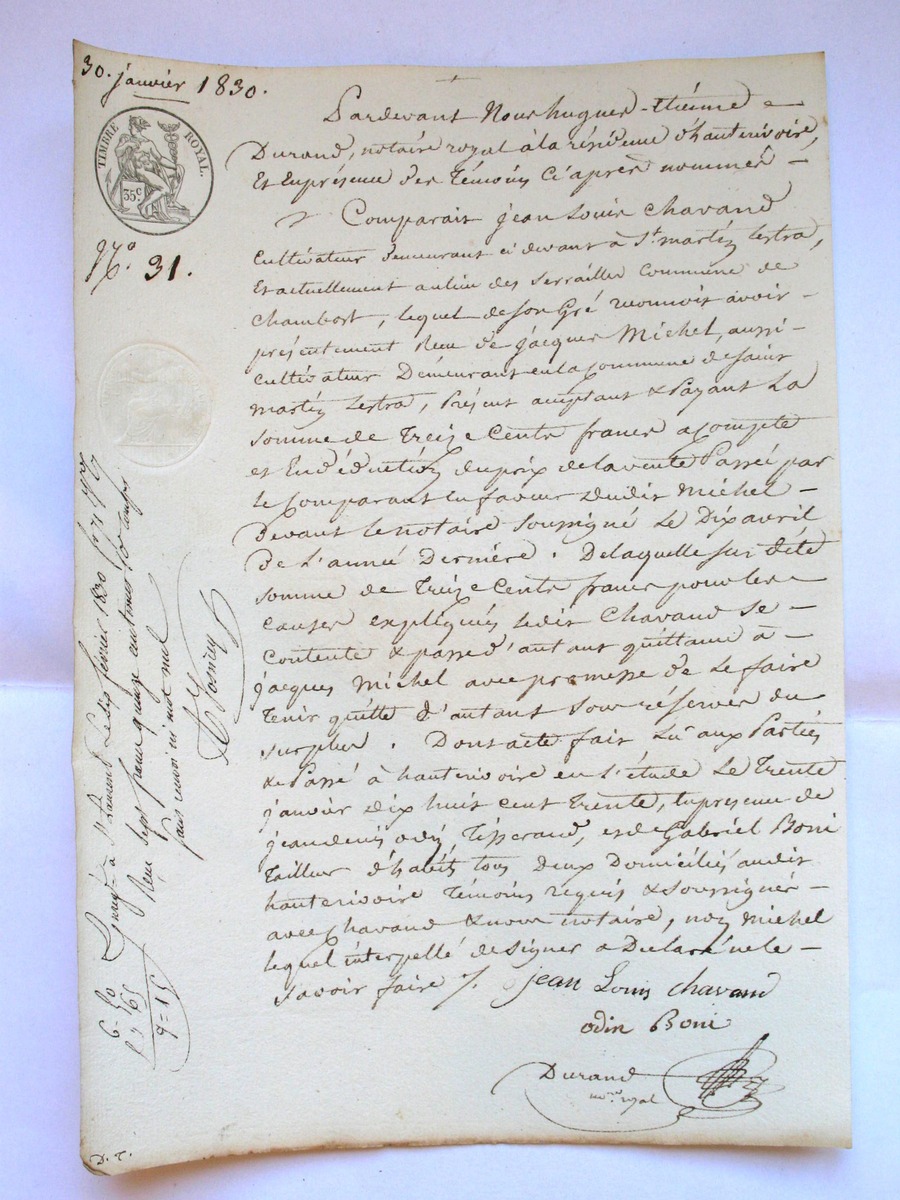 30. janvier 1830.
TIMBRE ROYAL.
35c
No. 31.
Pardevant Nous hugues-Etienne
Durand, notaire royal à la résidence d'hauterivoire,
Et en présence des Témoins ci après nommés
Comparait jean Louis Chavand
Cultivateur demeurant ci devant à St martin Lestra,
Et actuellement au lieu des Serrailles Commune de
Chambost, lequel de son Gré reconnoit avoir
présentement Reçu de jacques Michel, aussi
cultivateur Demeurant en la Commune de saint
martin Lestra, Présent acceptant & Payant La
somme de Treize Cents francs acompte
et En déduction du prix de la vente Passée par
le Comparant en faveur dudit Michel
devant le notaire soussigné Le Dix avril
de L'année Dernière. De laquelle sus dite
somme de Treize Cents francs pour les
causes expliquées ledit Chavand se
Contente & passe d'autant quittance à
jacques Michel avec promesse de Le faire
Tenir quitte d'autant sous réserves du
surplus. Dont acte fait Lu aux Parties
& Passé à hauterivoire en L'étude Le Trente
janvier Dix huit cent Trente, En présence de
jean denis odin Tisserand, et de Gabriel Boni
Tailleur d'habits tous deux Domiciliés audit
hauterivoire Témoins requis & soussignés
avec Chavand & nous notaire, non Michel
lequel interpellé de signer a Déclaré ne le
savoir faire /.
jean Louis chavand
odin Boni
Durand
nore royal
à St Laurent Le dix février 1830
Reçu sept francs quinze centimes
sans renvoi ni mot nul
6-50
65
7=15
D. T.